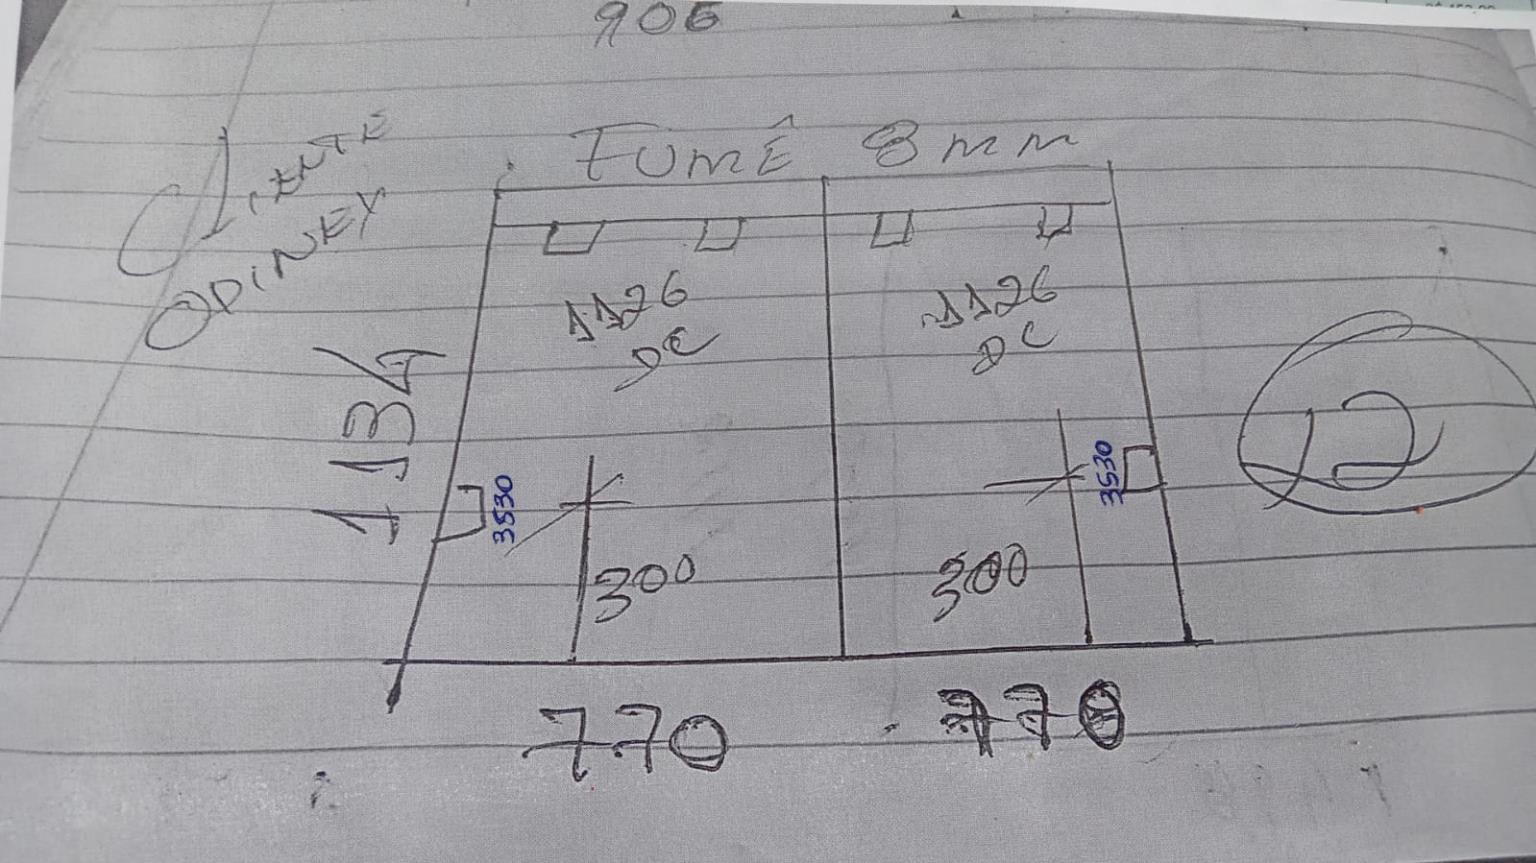 906
FUMÊ 8mm
CLIENTE
ODINEY
1134
1126
DC
1126
DC
3530
3530
300
300
12
770
770